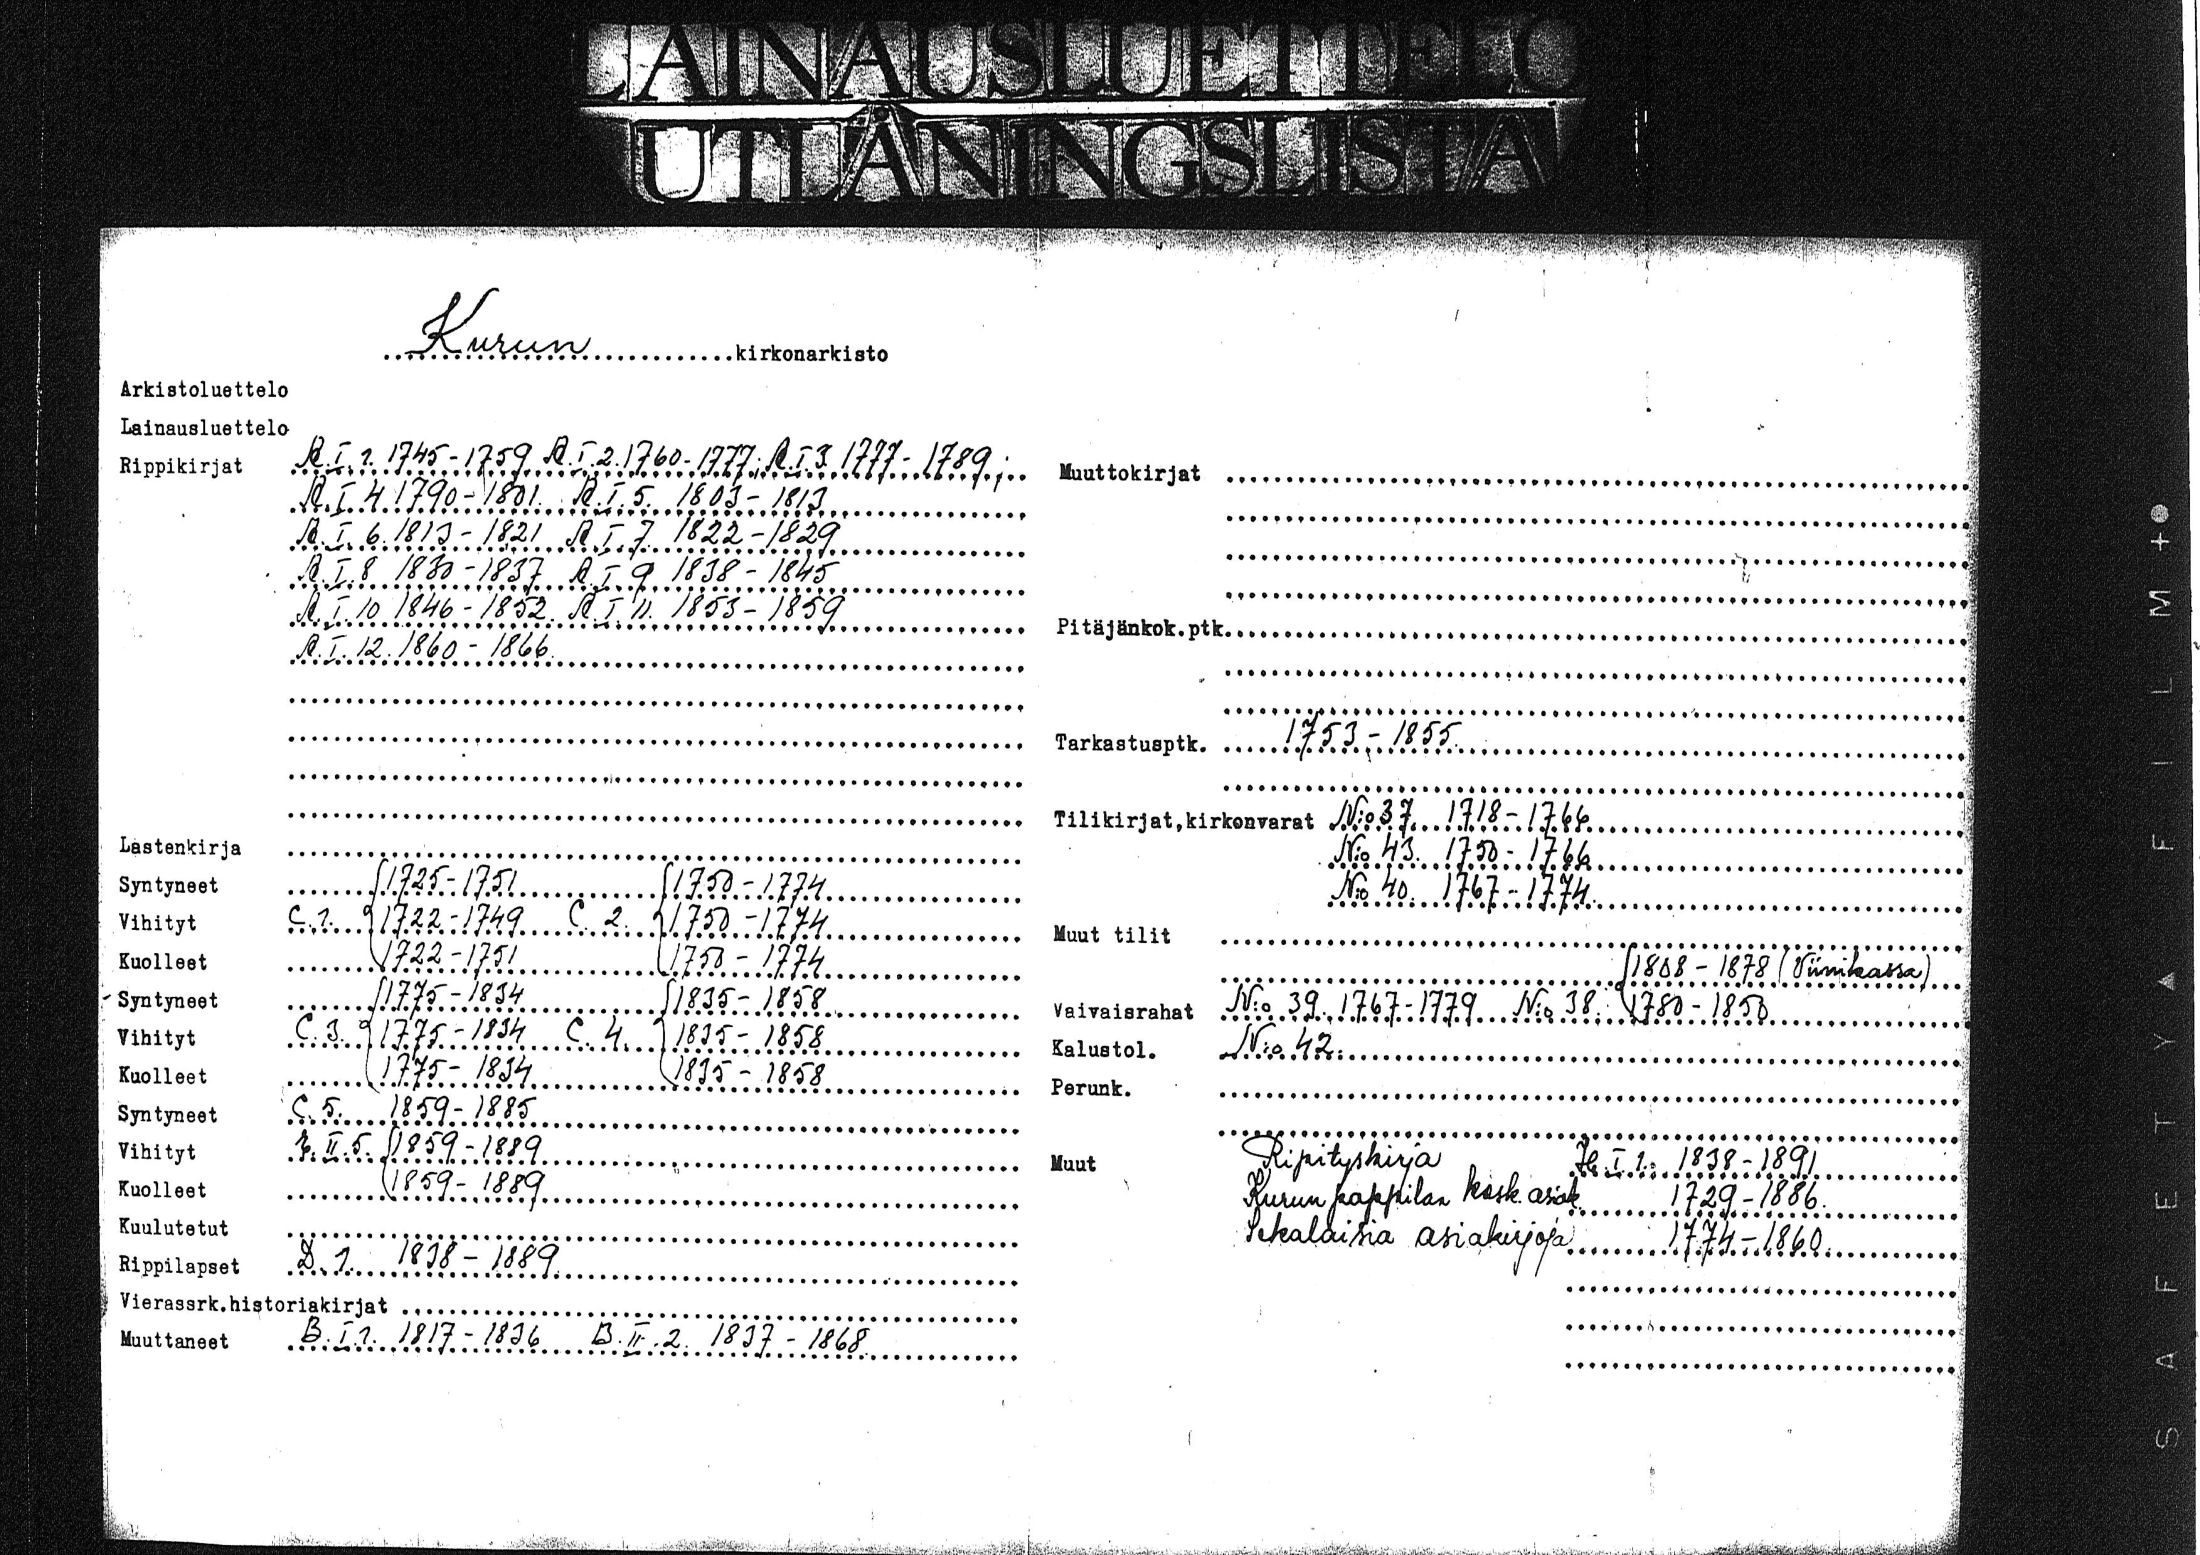 LAINAUSLUETTELO
UTLÅNINGSLISTA
Kurun kirkonarkisto
Arkistoluettelo
Lainausluettelo
Rippikirjat R.I.1. 1745-1759 R.I.2. 1760-1777; R.I.3. 1777-1789;
R.I.4. 1790-1801. R.I.5. 1803-1813
R.I.6. 1813-1821 R.I.7. 1822-1829
R.I.8 1830-1837 R.I.9 1838-1845
R.I.10 1846-1852. R.I.11. 1853-1859
R.I.12. 1860-1866.
Lastenkirja
Syntyneet 1725-1751 1750-1774
Vihityt C.1. 1722-1749 C.2. 1750-1774
Kuolleet 1722-1751 1750-1774
Syntyneet 1775-1834 1835-1858
Vihityt C.3. 1775-1834 C.4. 1835-1858
Kuolleet 1775-1834 1835-1858
Syntyneet C.5. 1859-1885
Vihityt II.5. 1859-1889
Kuolleet 1859-1889
Kuulutetut
Rippilapset D.1. 1838-1889
Vierassrk.historiakirjat
Muuttaneet B.I.1. 1817-1836 B.II.2. 1837-1868
Muuttokirjat
Pitäjänkok.ptk.
Tarkastusptk. 1753-1855.
Tilikirjat,kirkonvarat N:o 37. 1718-1766
N:o 43. 1750-1766
N:o 40. 1767-1774.
Muut tilit
1808-1878 (Viinikassa)
Vaivaisrahat N:o 39. 1767-1779 N:o 38. 1780-1850
Kalustol. N:o 42.
Perunk.
Muut Ripityskirja H.I.1. 1838-1891
Kurun pappilan kosk. asiak. 1729-1886.
Sekalaisia asiakirjoja 1774-1860.
SAFETY ▲ FILM